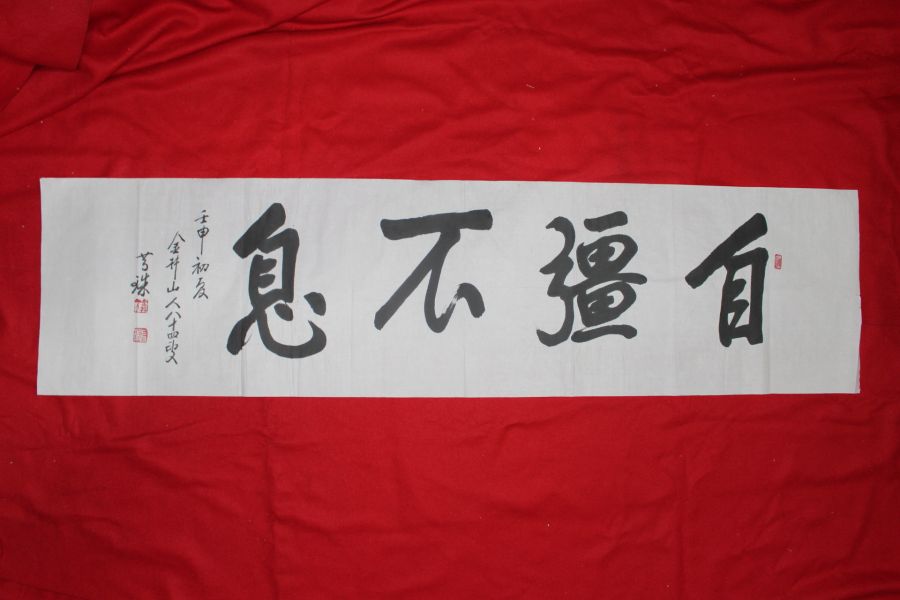 自彊不息
壬申初夏
金井山人八十四叟